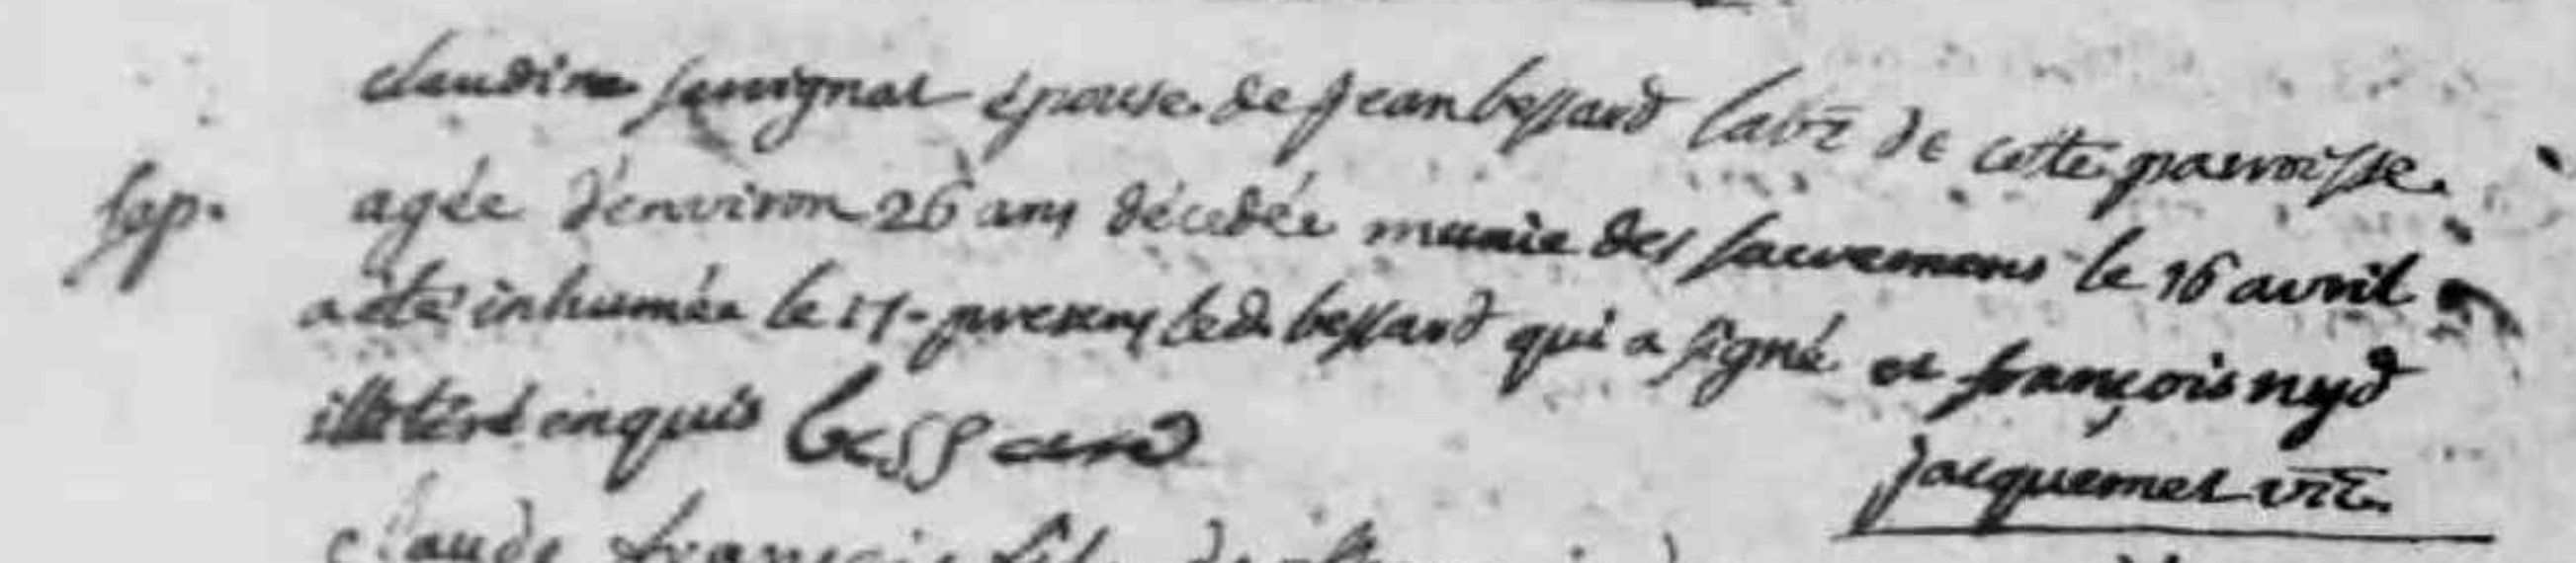 claudine savignat épouse de jean bessard labr de cette parroisse.
sep. agée d'environ 26 ans décedée munie des sacremens le 16 avril
a été inhumée le 17. presens led. bessard qui a signé et françois nyd
illitéré enquis bessard
jacquemet vic.
claude françois fils de